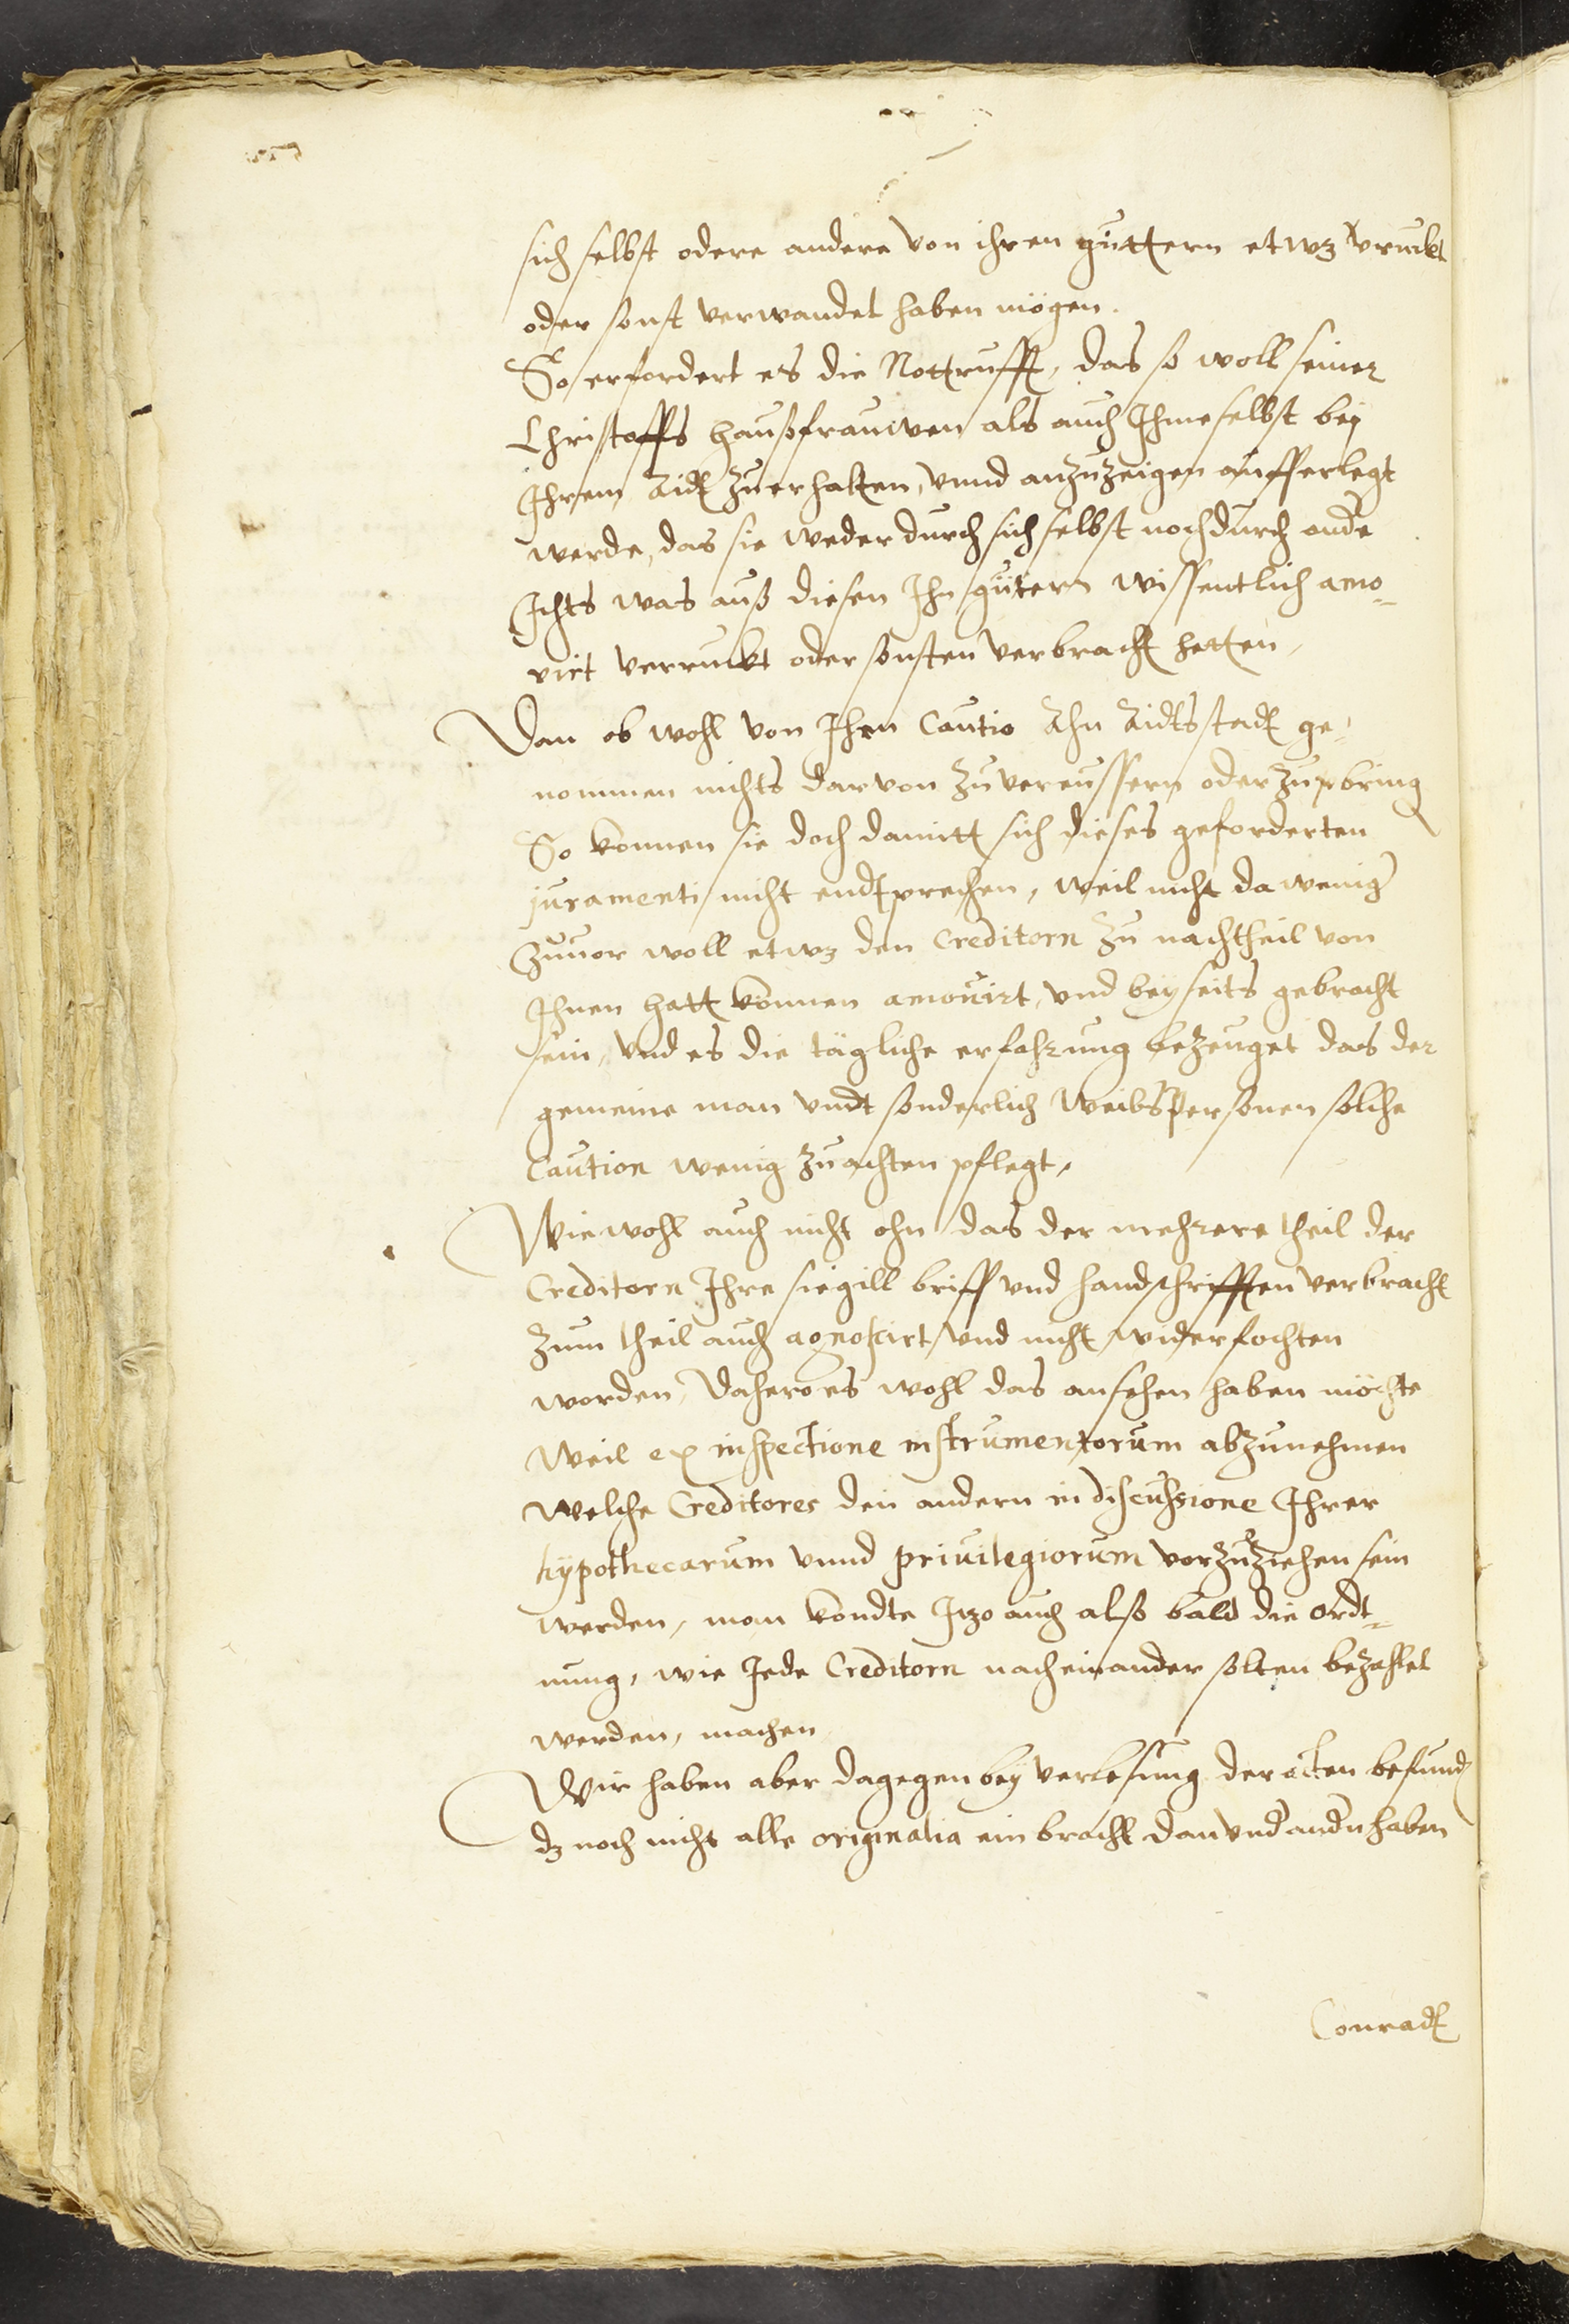 sich selbst odere andere von ihren güttern etwz vruckt
oder sonst verwandet haben mögen.
So erfordert es die Nottrufft, das so woll seiner
Christoffs haußfrauwen als auch Ihme selbst bey
Ihrem Aidt zuerhalten, vnnd anzuzeigen aufferlegt
werde, das sie weder durch sich selbst noch durch ande
Ichts was auß diesen Ihn gütern wissentlich amo-
virt verruckt oder sonsten verbracht hetten,
Dan ob wohl von Ihrn Cautio Ahn Aidtsstadt ge-
nommen nichts darvon zu vereussern oder zu pbring
So konnen sie doch damitt sich dieses geforderten
juramenti nicht endtprechen, weil nicht da weniger
Zuuor woll etwz den Creditorn zu nachtheil von
Ihnen hatt können amouirt, vnd beyseits gebracht
sein, vnd es die tägliche erfahrung bezeuget das der
gemeine man vndt sonderlich Weibspersonen solche
Caution wenig zuachten pflegt,
Wiewohl auch nicht ohn das der mehrere theil der
Creditorn Ihre siegill briff vnd handschrifften verbracht
zum theil auch agnoscirt vnd nicht widerfochten
worden, Dahero es wohl das ansehen haben möchte
Weil ex inspectione instrumentorum abzunehmen
welche Creditores den andern in discussione Ihrer
hypothecarum vnnd priuilegiorum vorzuziehen sein
werden, man kondte Itzo auch alß bald die ordt-
nung, wie Jede Creditorn nach einander solten bezahlet
werden, machen
Wir haben aber dagegen bey verlesung der acten befund
dz noch nicht alle originalia ein bracht dan vnd andn haben
Conradt